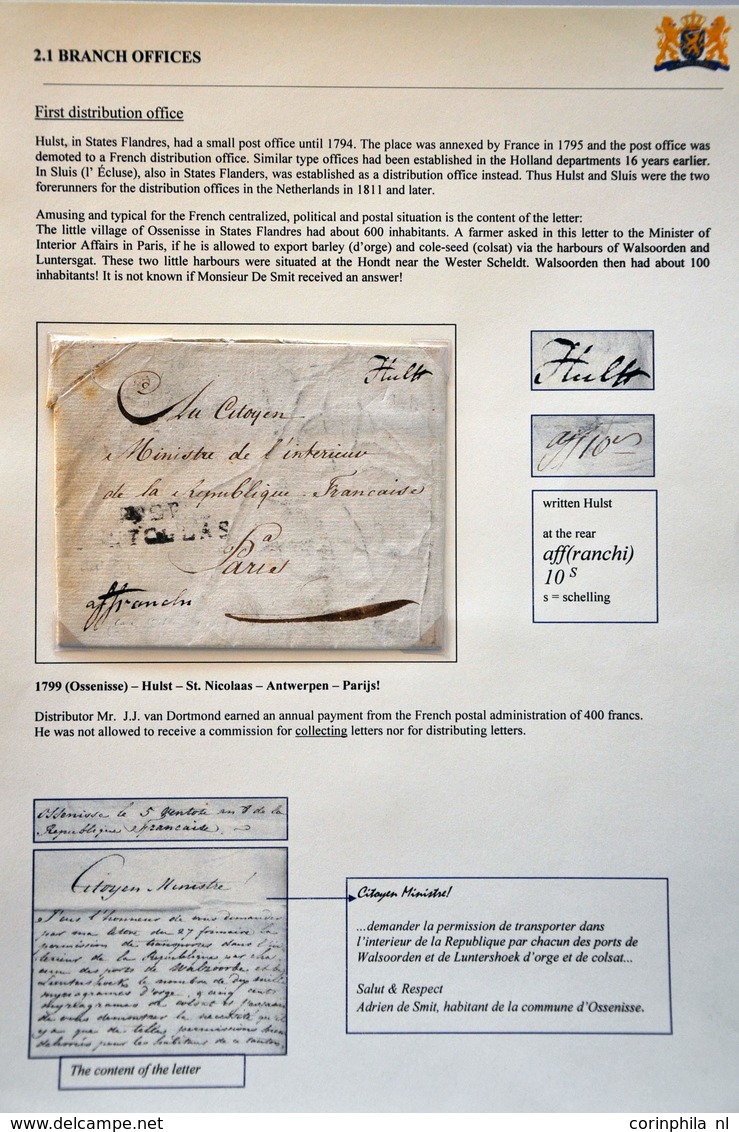 2.1 BRANCH OFFICES
First distribution office
Hulst, in States Flandres, had a small post office until 1794. The place was annexed by France in 1795 and the post office was
demoted to a French distribution office. Similar type offices had been established in the Holland departments 16 years earlier.
In Sluis (l' Écluse), also in States Flanders, was established as a distribution office instead. Thus Hulst and Sluis were the two
forerunners for the distribution offices in the Netherlands in 1811 and later.
Amusing and typical for the French centralized, political and postal situation is the content of the letter:
The little village of Ossenisse in States Flandres had about 600 inhabitants. A farmer asked in this letter to the Minister of
Interior Affairs in Paris, if he is allowed to export barley (d'orge) and cole-seed (colsat) via the harbours of Walsoorden and
Luntersgat. These two little harbours were situated at the Hondt near the Wester Scheldt. Walsoorden then had about 100
inhabitants! It is not known if Monsieur De Smit received an answer!
Hulst
Au Citoyen
Ministre de l'interieur
de la Republique Francaise
NICOLAS
a
Paris
affranchi
Hulst
aff 10 s
written Hulst
at the rear
aff(ranchi)
10 S
s = schelling
1799 (Ossenisse) – Hulst – St. Nicolaas – Antwerpen – Parijs!
Distributor Mr. J.J. van Dortmond earned an annual payment from the French postal administration of 400 francs.
He was not allowed to receive a commission for collecting letters nor for distributing letters.
Ossenisse le 5 Ventose de la
Republique francaise
Citoyen Ministre!
J'ai l'honneur de vous demander
par ma lettre du 27 frimaire la
permission de transporter dans l'in
terieur de la Republique par cha
cun des ports de Walsoorde et
le nombre de dix mille
myriagrames d'orge, cinq cents
myriagrames de colsat
de vous demontrer la
que de telle permission bien
pour les habitans de ce canton
Citoyen Ministre!
...demander la permission de transporter dans
l'interieur de la Republique par chacun des ports de
Walsoorden et de Luntershoek d'orge et de colsat...
Salut & Respect
Adrien de Smit, habitant de la commune d'Ossenisse.
The content of the letter
corinphila nl